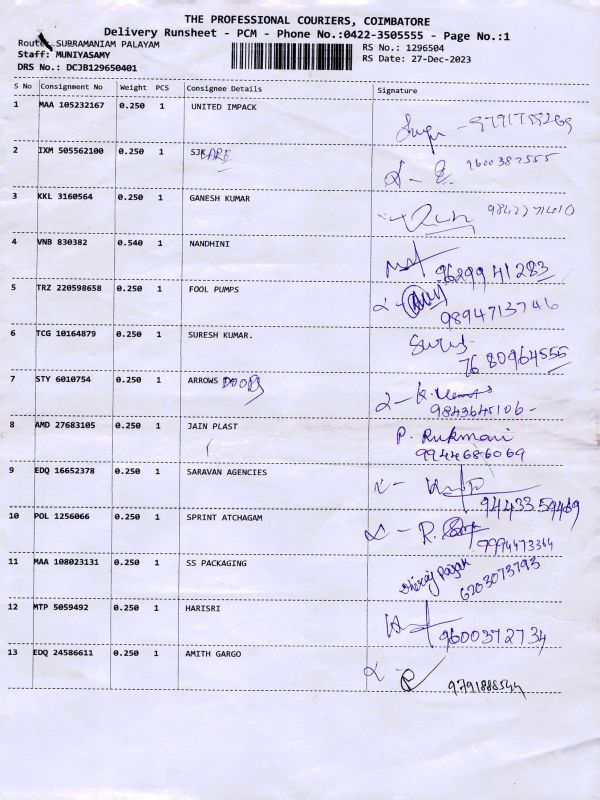 THE PROFESSIONAL COURIERS, COIMBATORE
Delivery Runsheet - PCM - Phone No.:0422-3505555 - Page No.:1
Route: SUBRAMANIAM PALAYAM RS No.: 1296504
Staff: MUNIYASAMY RS Date: 27-Dec-2023
DRS No.: DCJB129650401
S No Consignment No Weight PCS Consignee Details Signature
1 MAA 105232167 0.250 1 UNITED IMPACK
2 IXM 505562100 0.250 1 SJK CARE 9600387555
3 KKL 3160564 0.250 1 GANESH KUMAR
4 VNB 830382 0.540 1 NANDHINI 9629941283
5 TRZ 220598658 0.250 1 FOOL PUMPS 9894713746
6 TCG 10164879 0.250 1 SURESH KUMAR. 7680964555
7 STY 6010754 0.250 1 ARROWS DOORS 9843645106 -
8 AMD 27683105 0.250 1 JAIN PLAST P. Rukmani
9944686069
9 EDQ 16652378 0.250 1 SARAVAN AGENCIES 94433 59469
10 POL 1256066 0.250 1 SPRINT ATCHAGAM 9994473344
11 MAA 108023131 0.250 1 SS PACKAGING 6203073793
12 MTP 5059492 0.250 1 HARISRI 9600372734
13 EDQ 24586611 0.250 1 AMITH GARGO